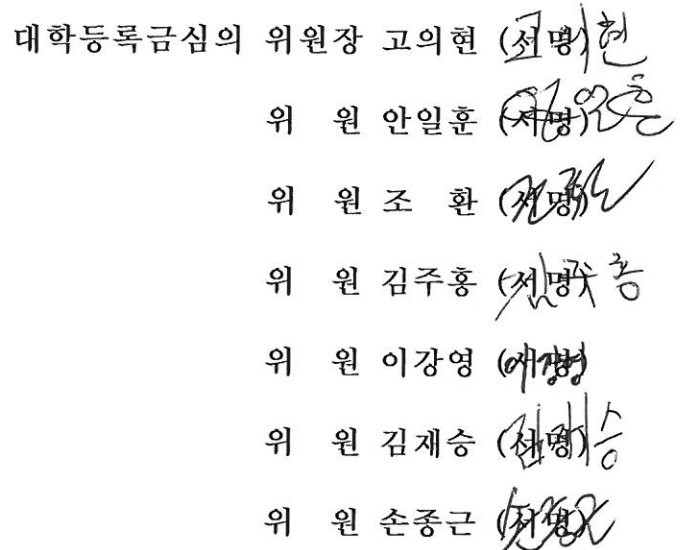 대학등록금심의 위원장 고의현 (서명)
위 원 안일훈 (서명)
위 원 조 환 (서명)
위 원 김주홍 (서명)
위 원 이강영 (서명)
위 원 김재승 (서명)
위 원 손종근 (서명)